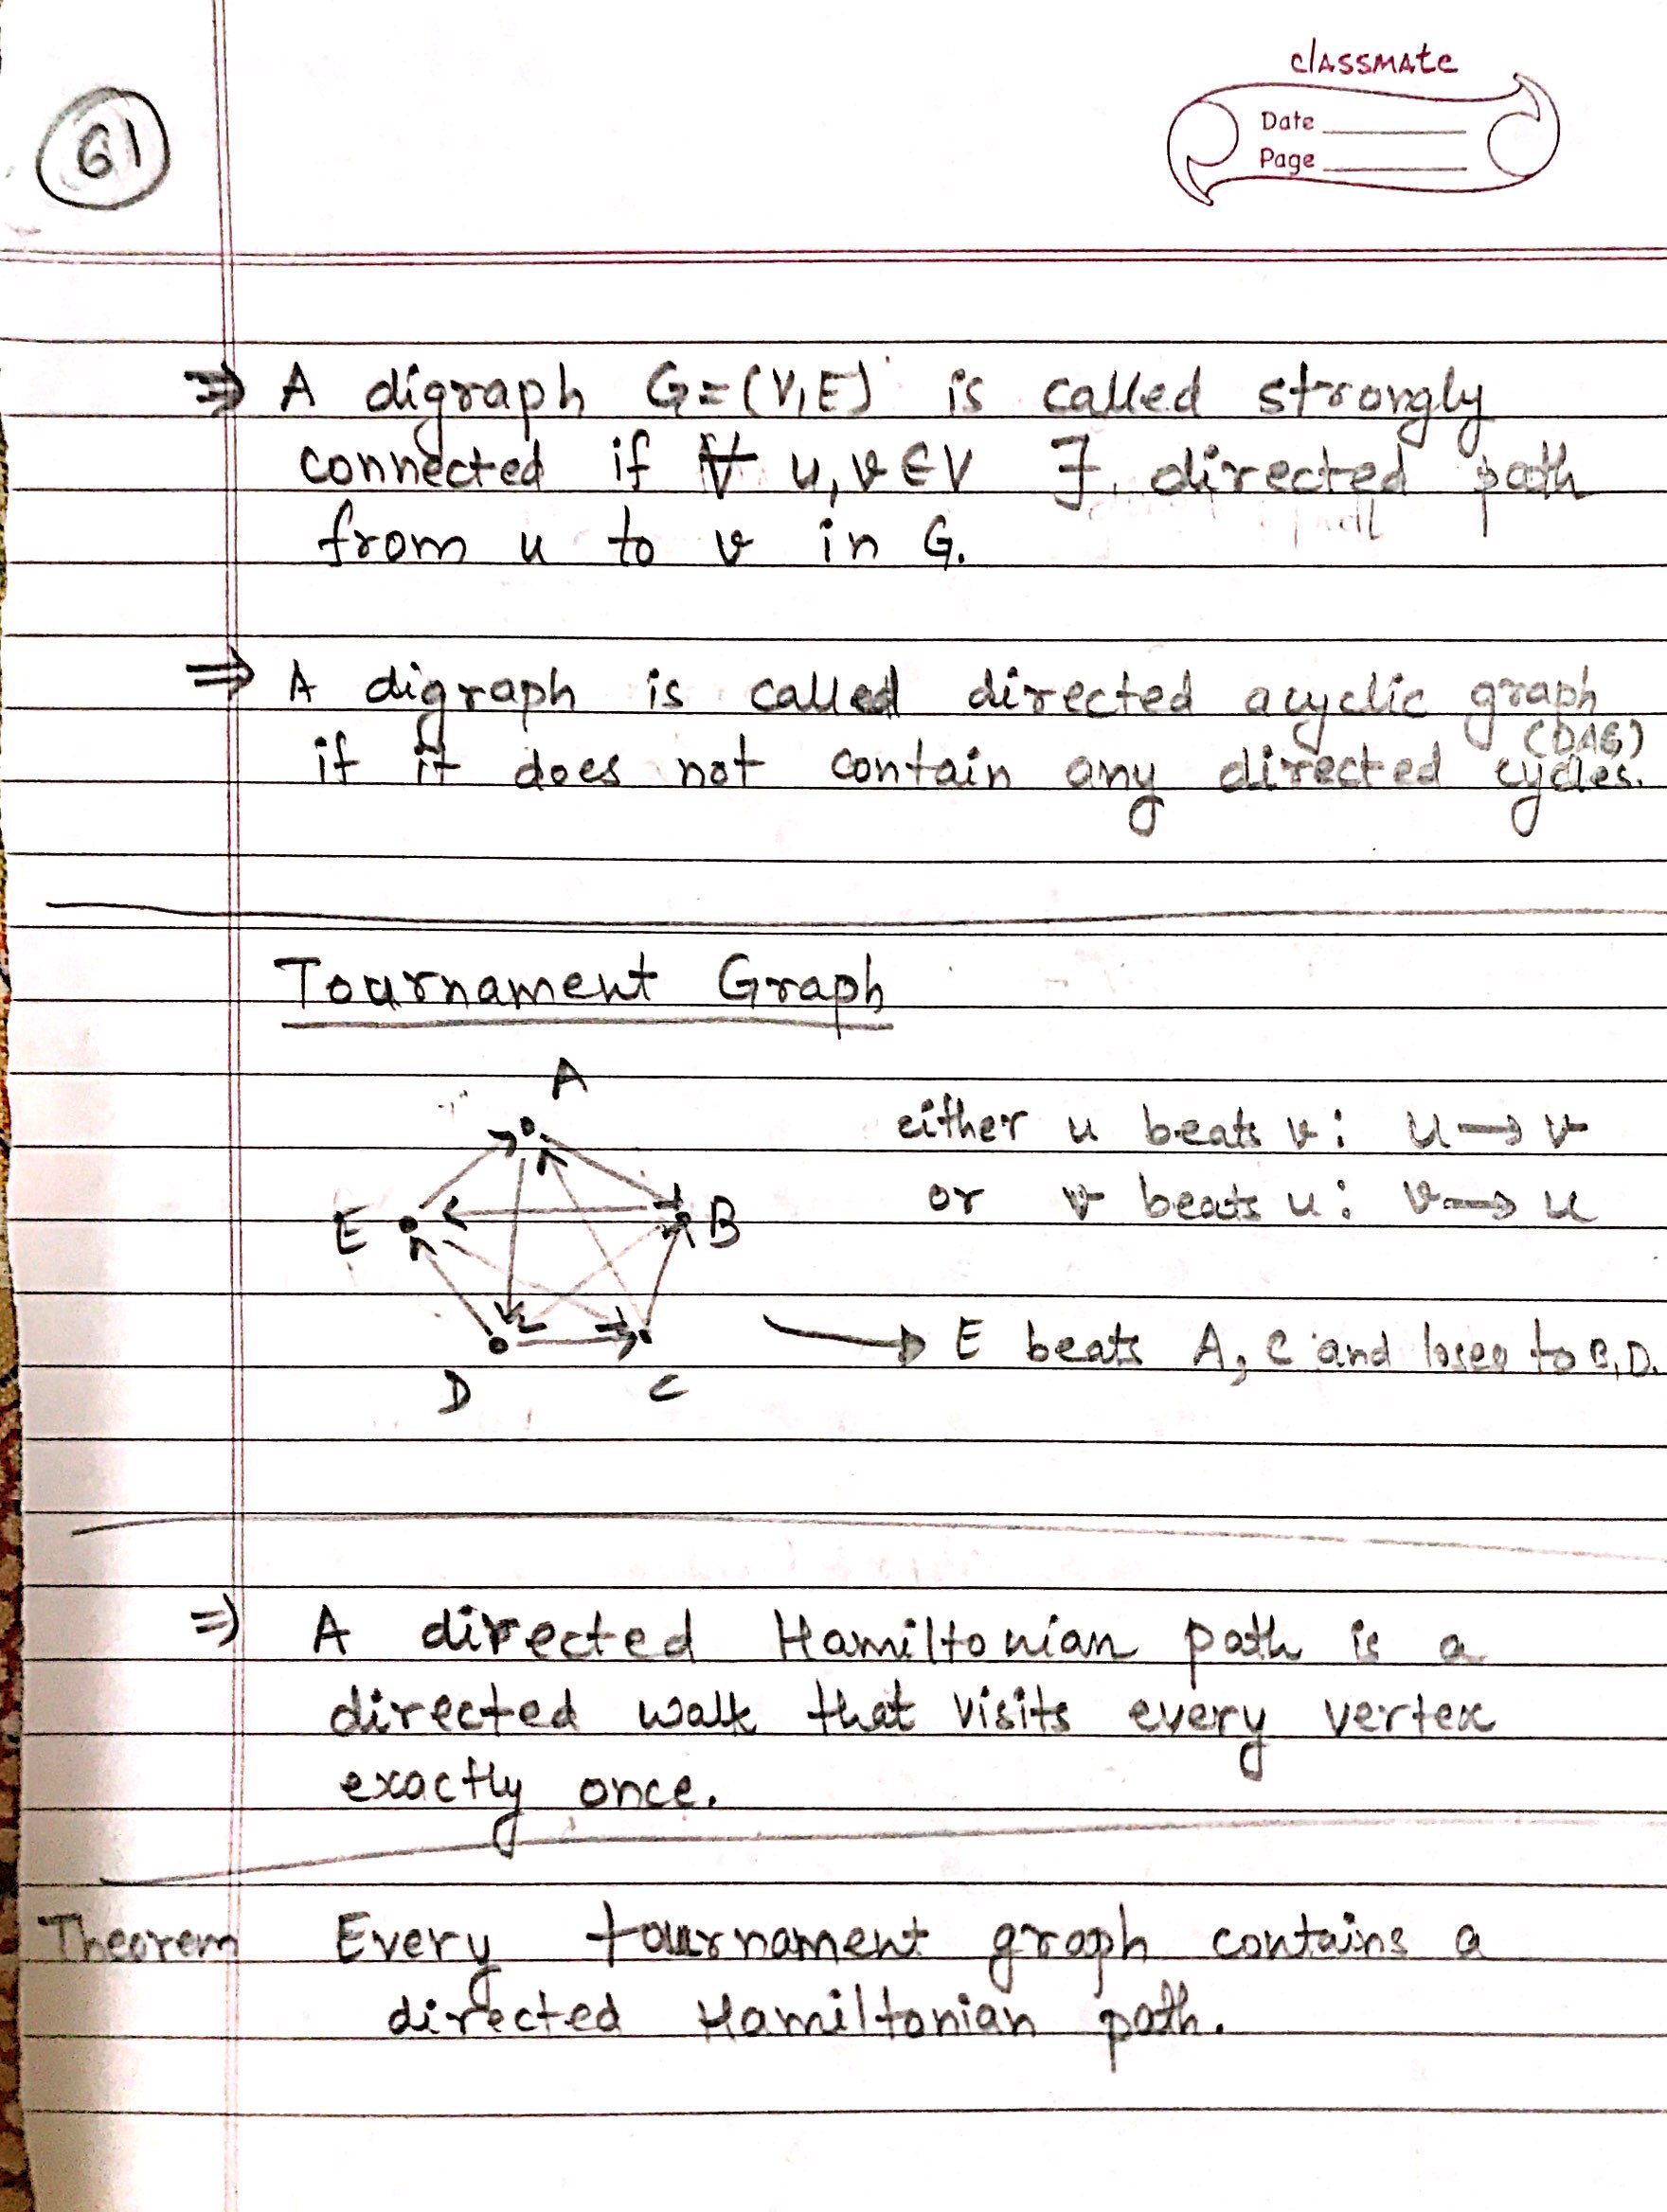 classmate
Date
Page
61
⇒ A digraph G=(V,E) is called strongly
connected if ∀ u,v ∈ V ∃ directed path
from u to v in G.
⇒ A digraph is called directed acyclic graph
(DAG)
if it does not contain any directed cycles.
Tournament Graph
A
either u beats v: u → v
or v beats u: v → u
E
B
→ E beats A, C and loses to B, D.
D
C
⇒ A directed Hamiltonian path is a
directed walk that visits every vertex
exactly once.
Theorem Every tournament graph contains a
directed Hamiltonian path.